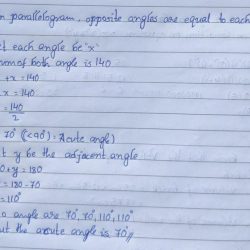 n parallelogram, opposite angles are equal to each
t each angle be "x"
um of both angle is 140
+ x = 140
x = 140
= 140
2
70° (<90° = Acute angle)
t y be the adjacent angle
0 + y = 180
= 180 - 70
= 110°
o angle are 70°, 70°, 110°, 110°
ut the acute angle is 70°//